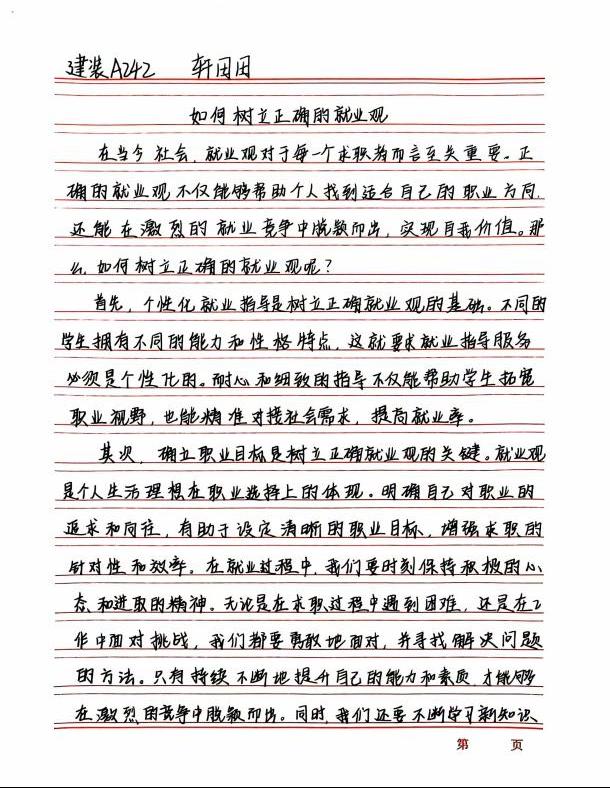 建装A242 轩田田
如何树立正确的就业观
在当今社会，就业观对于每一个求职者而言至关重要。正
确的就业观不仅能够帮助个人找到适合自己的职业方向，
还能在激烈的就业竞争中脱颖而出，实现自我价值。那
么，如何树立正确的就业观呢？
首先，个性化就业指导是树立正确就业观的基础。不同的
学生拥有不同的能力和性格特点，这就要求就业指导服务
必须是个性化的。耐心和细致的指导不仅能帮助学生拓宽
职业视野，也能精准对接社会需求，提高就业率。
其次，确立职业目标是树立正确就业观的关键。就业观
是个人生活理想在职业选择上的体现。明确自己对职业的
追求和向往，有助于设定清晰的职业目标，增强求职的
针对性和效率。在就业过程中，我们要时刻保持积极的心
态和进取的精神。无论是在求职过程中遇到困难，还是在工
作中面对挑战，我们都要勇敢地面对，并寻找解决问题
的方法。只有持续不断地提升自己的能力和素质，才能够
在激烈的竞争中脱颖而出。同时，我们还要不断学习新知识、
第 页